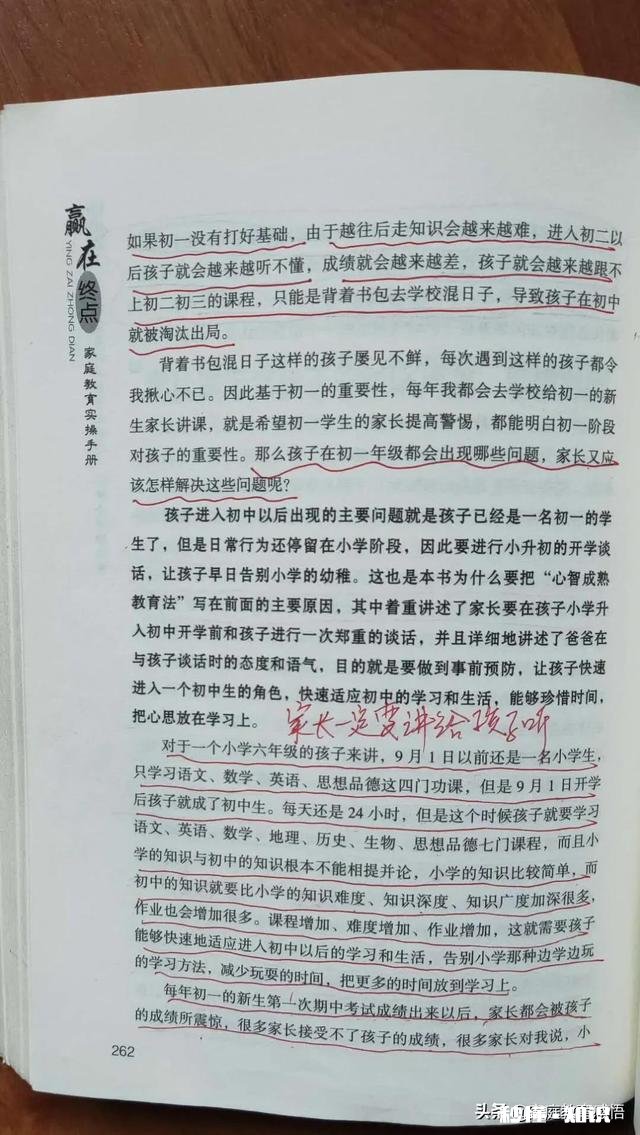 赢在终点
YING ZAI ZHONG DIAN
家庭教育实操手册
如果初一没有打好基础，由于越往后走知识会越来越难，进入初二以
后孩子就会越来越听不懂，成绩就会越来越差，孩子就会越来越跟不
上初二初三的课程，只能是背着书包去学校混日子，导致孩子在初中
就被淘汰出局。
背着书包混日子这样的孩子屡见不鲜，每次遇到这样的孩子都令
我揪心不已。因此基于初一的重要性，每年我都会去学校给初一的新
生家长讲课，就是希望初一学生的家长提高警惕，都能明白初一阶段
对孩子的重要性。那么孩子在初一年级都会出现哪些问题，家长又应
该怎样解决这些问题呢？
孩子进入初中以后出现的主要问题就是孩子已经是一名初一的学
生了，但是日常行为还停留在小学阶段，因此要进行小升初的开学谈
话，让孩子早日告别小学的幼稚。这也是本书为什么要把“心智成熟
教育法”写在前面的主要原因，其中着重讲述了家长要在孩子小学升
入初中开学前和孩子进行一次郑重的谈话，并且详细地讲述了爸爸在
与孩子谈话时的态度和语气，目的就是要做到事前预防，让孩子快速
进入一个初中生的角色，快速适应初中的学习和生活，能够珍惜时间，
把心思放在学习上。
家长一定要讲给孩子听
对于一个小学六年级的孩子来讲，9月1日以前还是一名小学生，
只学习语文、数学、英语、思想品德这四门功课，但是9月1日开学
后孩子就成了初中生。每天还是24小时，但是这个时候孩子就要学习
语文、英语、数学、地理、历史、生物、思想品德七门课程，而且小
学的知识与初中的知识根本不能相提并论，小学的知识比较简单，而
初中的知识就要比小学的知识难度、知识深度、知识广度加深很多，
作业也会增加很多。课程增加、难度增加、作业增加，这就需要孩子
能够快速地适应进入初中以后的学习和生活，告别小学那种边学边玩
的学习方法，减少玩耍的时间，把更多的时间放到学习上。
每年初一的新生第一次期中考试成绩出来以后，家长都会被孩子
的成绩所震惊，很多家长接受不了孩子的成绩，很多家长对我说，小
262
头条